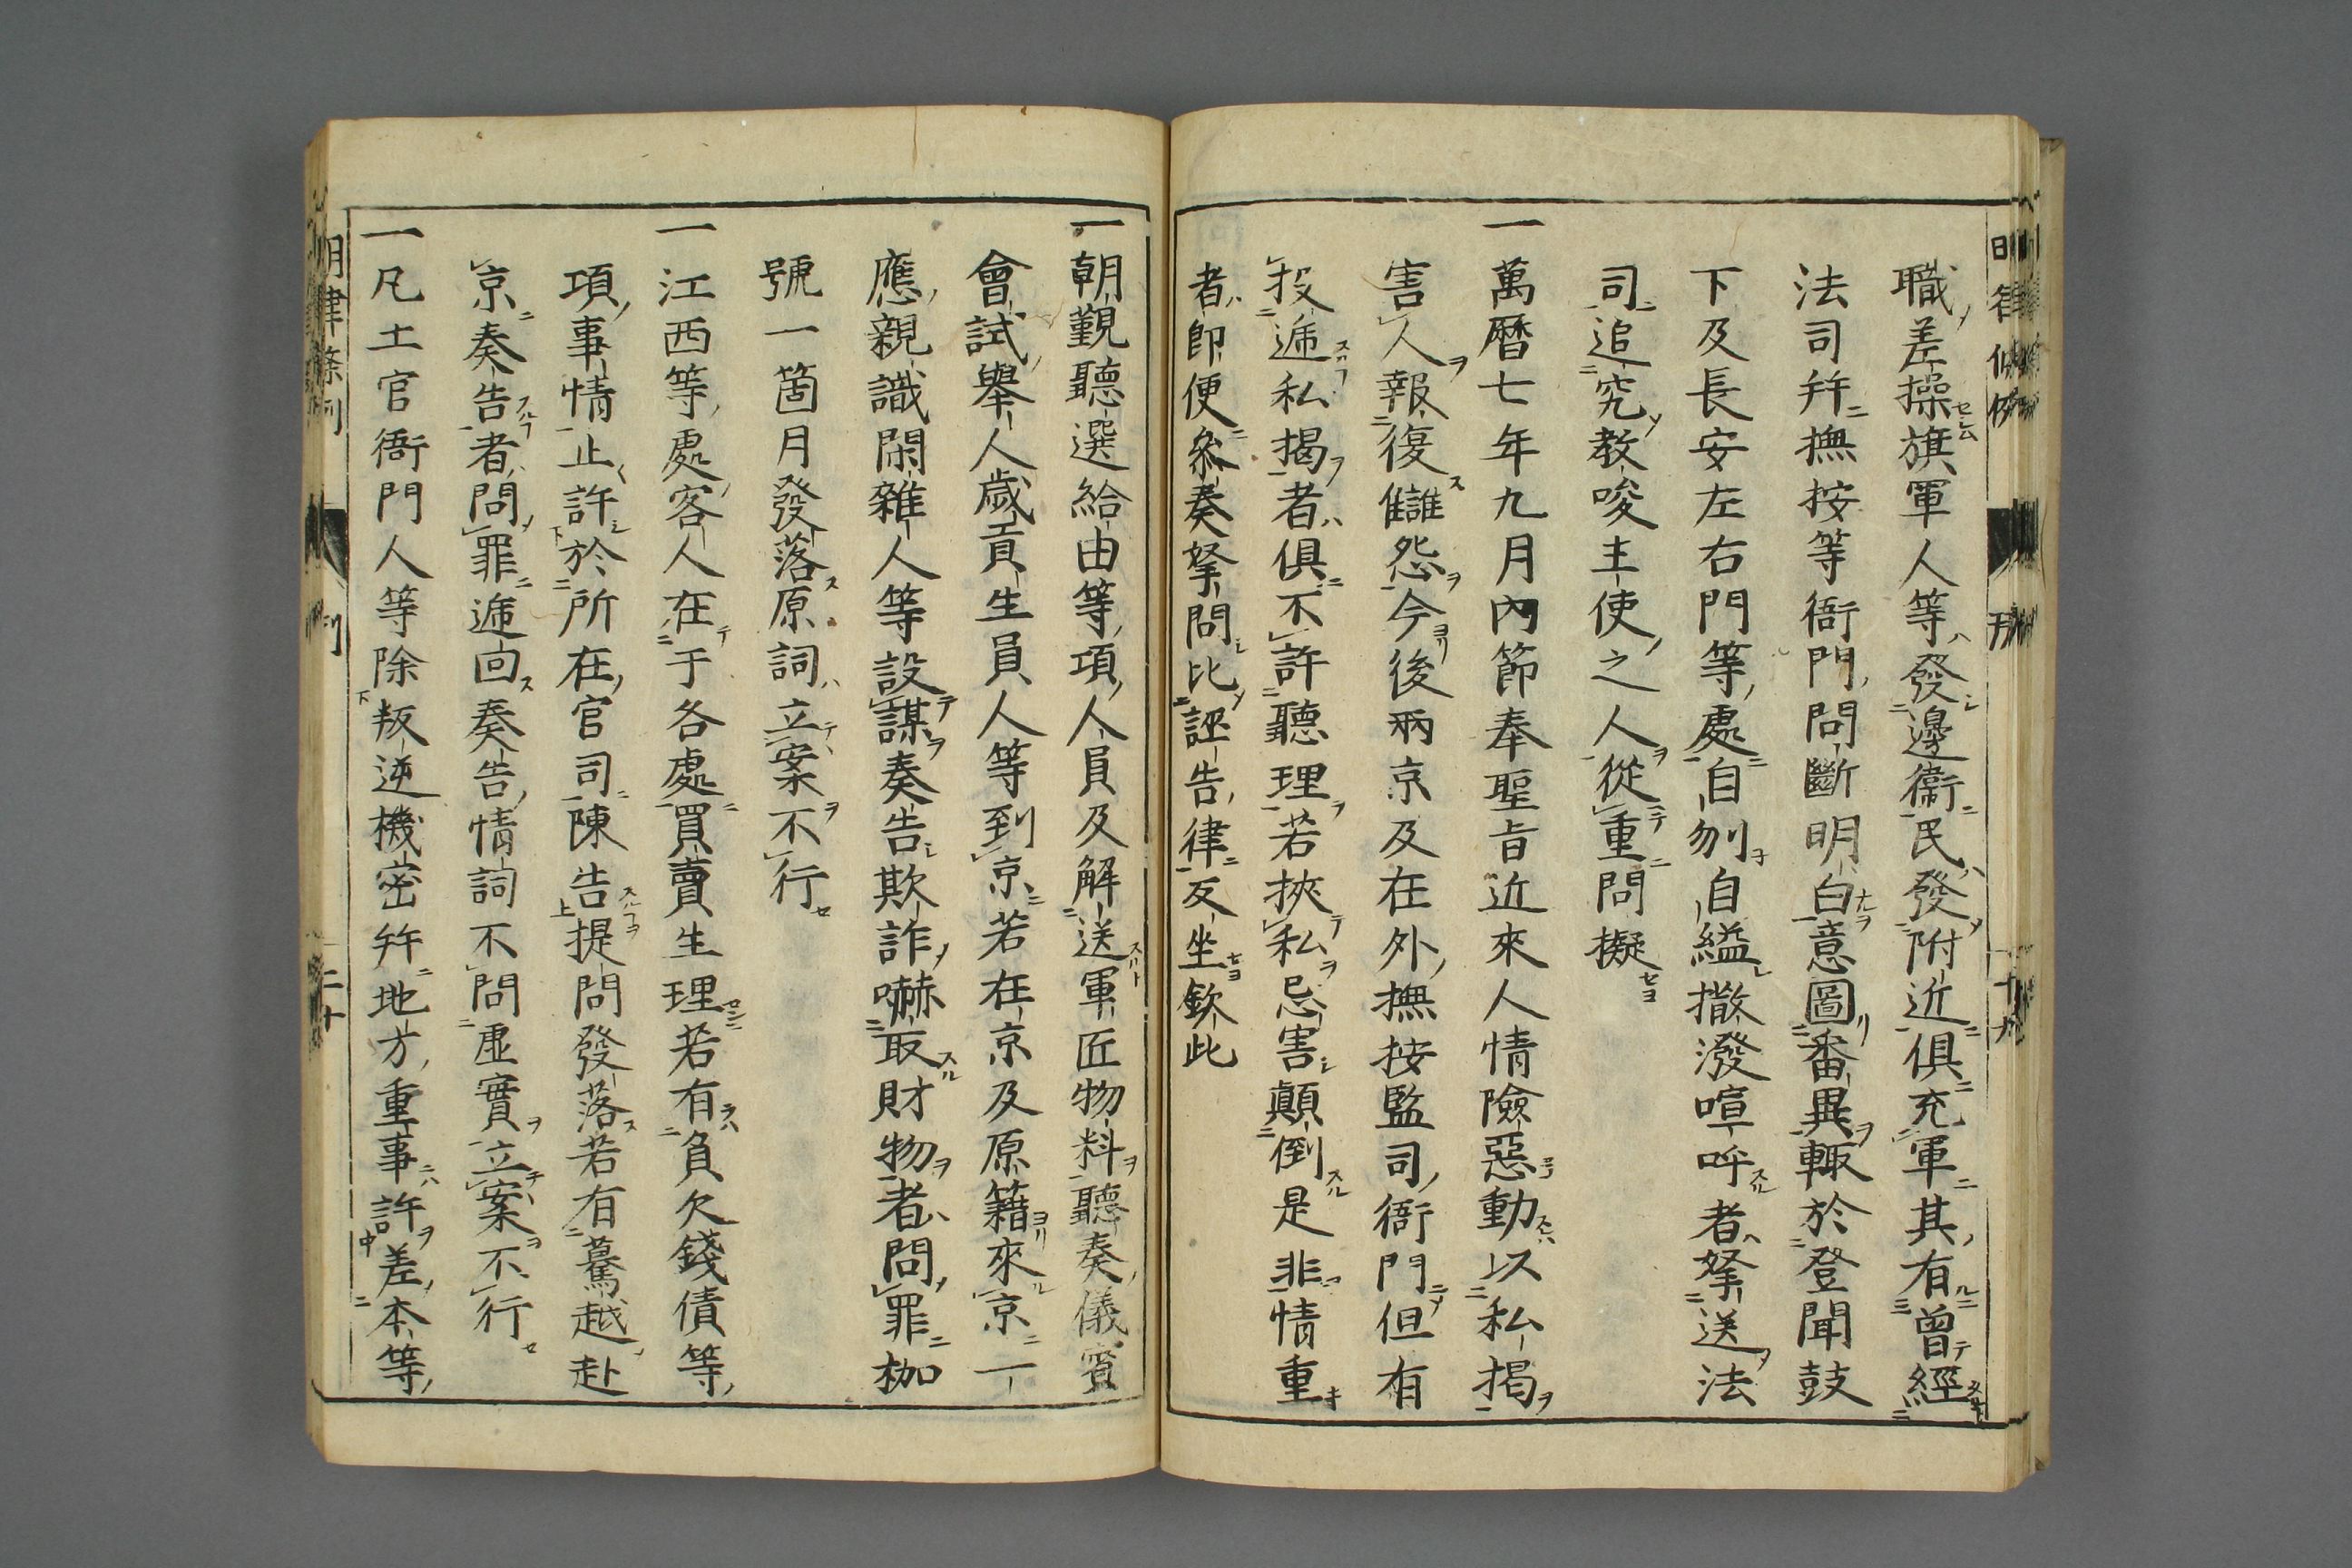 職差操旗軍人等發邊衞民發附近俱充軍其有曾經
法司幷撫按等衙門問斷明白意圖番異輒於登聞鼓
下及長安左右門等處自刎自縊撒潑喧呼者拏送法
司追究教唆主使之人從重問擬
一萬曆七年九月內節奉聖旨近來人情險惡動以私揭
害人報復讎怨今後兩京及在外撫按監司衙門但有
投遞私揭者俱不許聽理若挾私忌害顛倒是非情重
者卽便參奏拏問比誣告律反坐欽此
一朝覲聽選給由等項人員及解送軍匠物料聽奏儀賓
會試舉人歲貢生員人等到京若在京及原籍來京一
應親識閑雜人等設謀奏告欺詐嚇取財物者問罪枷
號一箇月發落原詞立案不行
一江西等處客人在于各處買賣生理若有負欠錢債等
項事情止許於所在官司陳告提問發落若有驀越赴
京奏告者問罪遞回奏告情詞不問虛實立案不行
一凡土官衙門人等除叛逆機密幷地方重事許差本等
明律條例
刑
十九
二十